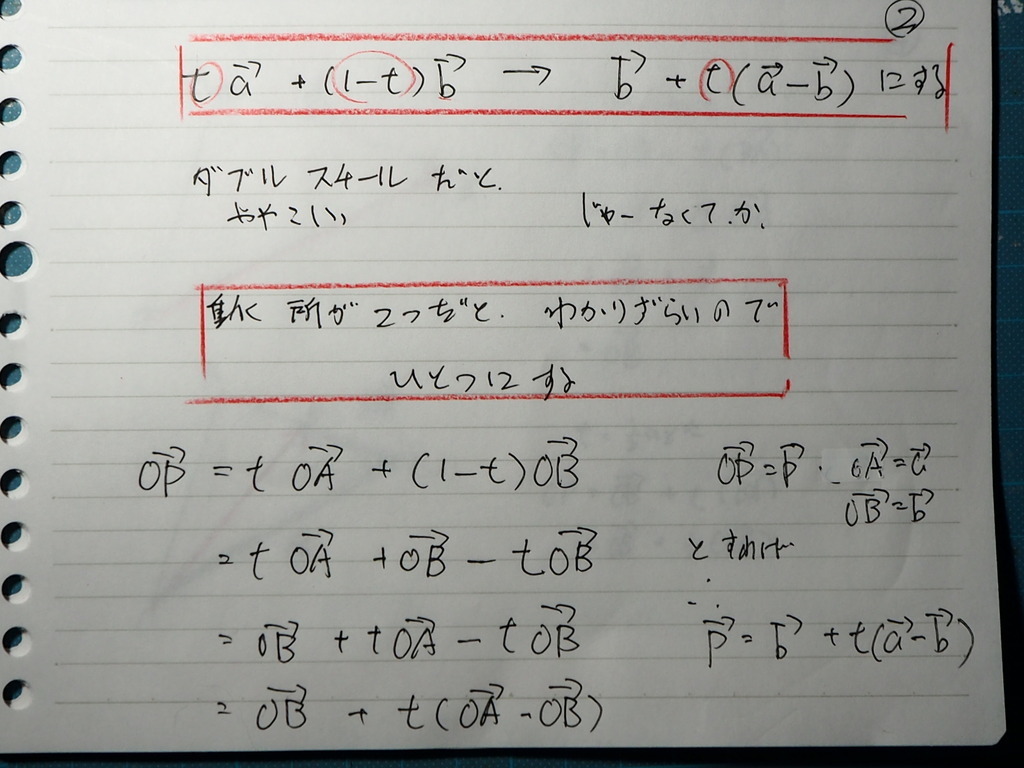 ②
t a⃗ + (1-t) b⃗ → b⃗ + t(a⃗-b⃗) にする
ダブル スケール だと、
ややこしい
じゃーなくて、か、
動く 所が 2つだと、わかりずらいので
ひとつに する
OP⃗ = t OA⃗ + (1-t)OB⃗
OP⃗=p⃗ . OA⃗=a⃗
OB⃗=b⃗
= t OA⃗ + OB⃗ - t OB⃗
と すれば
= OB⃗ + t OA⃗ - t OB⃗
p⃗ = b⃗ + t(a⃗-b⃗)
= OB⃗ + t(OA⃗-OB⃗)